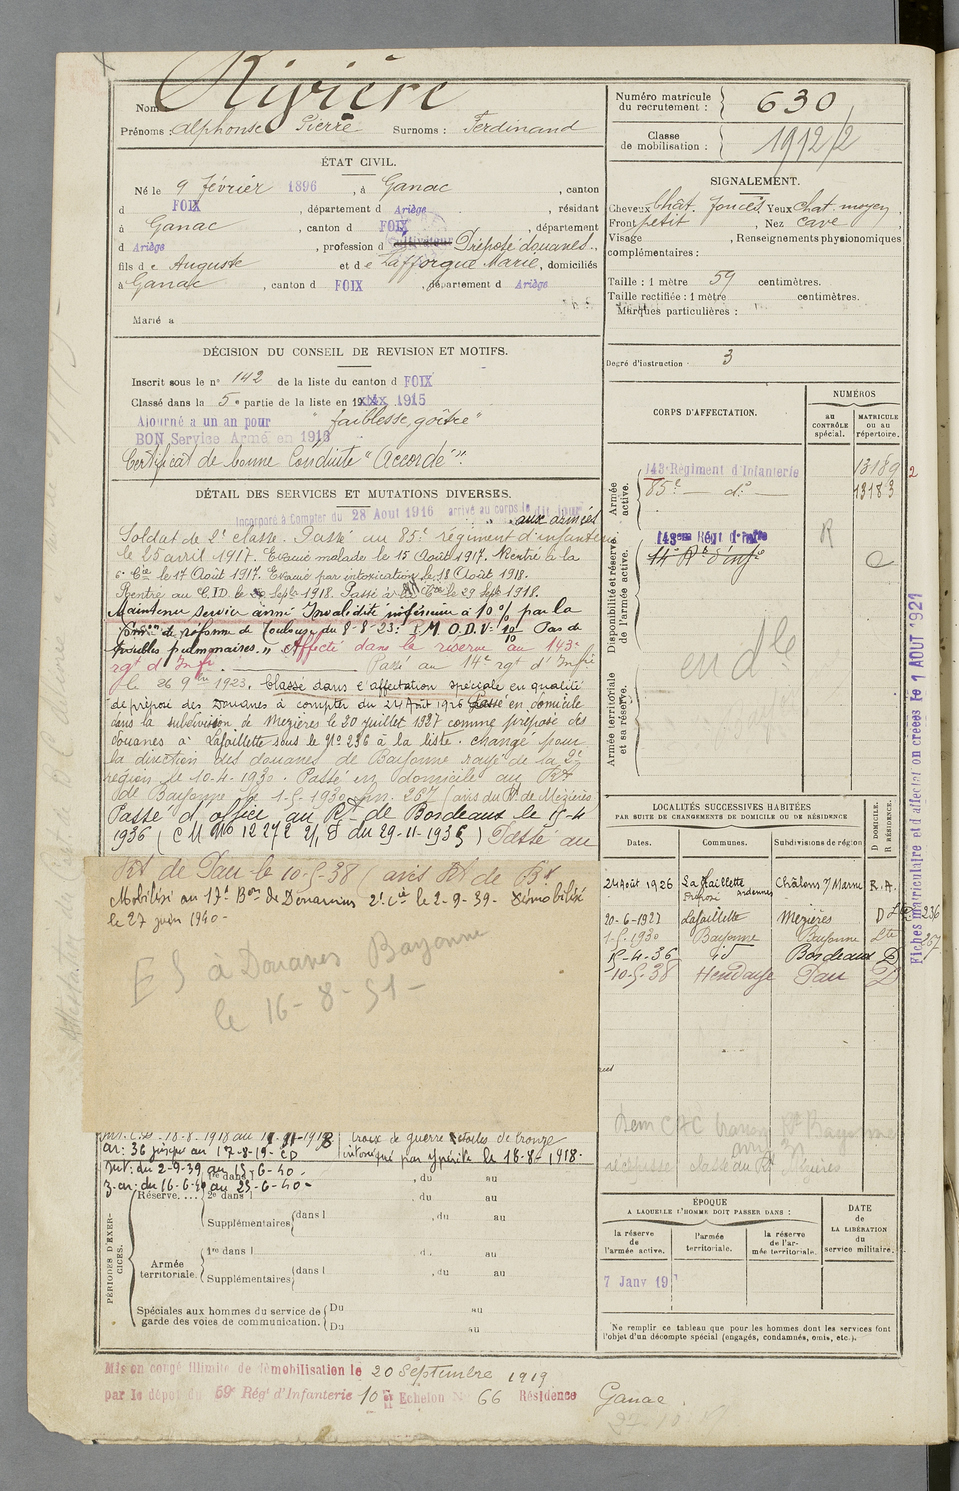 Nom : Rivière
Prénoms : Alphonse Pierre Surnoms : Ferdinand
ÉTAT CIVIL.
Né le 9 février 1896, à Ganac, canton
d FOIX, département d Ariège, résidant
à Ganac, canton d FOIX, département
d Ariège, profession d Cultivateur Préposé douanes.,
fils de Auguste et de Lafforgue Marie, domiciliés
à Ganac, canton d FOIX, département d Ariège
Marié à
DÉCISION DU CONSEIL DE REVISION ET MOTIFS.
Inscrit sous le n° 142 de la liste du canton d FOIX
Classé dans la 5e partie de la liste en 1915
Ajourné a un an pour "faiblesse, goître"
BON Service Armé en 1916
Certificat de bonne Conduite "Accordé".
DÉTAIL DES SERVICES ET MUTATIONS DIVERSES.
Incorporé à Compter du 28 Aout 1916 arrivé au corps le dit jour
aux armées
Soldat de 2e classe. Passé au 85e régiment d'infanterie
le 25 avril 1917. Evacué malade le 15 Août 1917. Rentré à la
6e Cie le 17 Août 1917. Evacué par intoxication le 18 Août 1918.
Rentré au C.I.D. le Septbre 1918. Passé à Cie le 29 Sept 1918.
Maintenu service armé Invalidité inférieure à 10% par la
Comon de réforme de Toulouse du 8-8-23. P.M.O.D.V= 10 Pas de
troubles pulmonaires. " Affecté dans la réserve au 143e
rgt d'Infie Passé au 14e rgt d'Infie
le 26 9bre 1923. Classé dans l'affectation spéciale en qualité
de préposé des Douanes à compter du 24 Août 1926 passé en domicile
dans la subdivision de Mézières le 20 juillet 1927 comme préposé des
douanes à Lafaillette sous le N° 236 à la liste. changé pour
la direction des douanes de Bayonne rayé de la 2e
région le 10-4-1930. Passé en domicile au Rt
de Bayonne le 1-5-1930 sur. 267 (avis du Rt de Mézières
Passé d'office au Rt de Bordeaux le 15-4
1936 (CM N° 12272 2/1 D du 29-11-1935) Passé au
Rt de Pau le 10-5-38 (avis Rt de Bx
Mobilisé au 17e Bon de Douaniers 2e Cie le 2-9-39. Démobilisé
le 27 juin 1940-
ES à Douanes Bayonne
le 16-8-51-
18-8-1918 au 11-11-1918 croix de guerre étoiles de bronze
ar: 36 jusqu'au 17-8-19. CD intoxiqué par ypérite le 18-8-1918.
Int. du 2-9-39 au 15-6-40.
z.ar: du 16-6-40 au 25-6-40-
PÉRIODES D'EXERCICES.
Réserve....
1re dans l , du au
2e dans l , du au
Supplémentaires (dans l , du au
Armée territoriale.
1re dans l , du au
Supplémentaires (dans l , du au
Spéciales aux hommes du service de garde des voies de communication.
Du au
Du au
Mis en congé illimité de démobilisation le 20 Septembre 1919
par le dépôt du 59e Régt d'Infanterie 10e Echelon N° 66 Résidence Ganac
Numéro matricule du recrutement : 630
Classe de mobilisation : 1912/2
SIGNALEMENT.
Cheveux Chât. foncés Yeux chat. moyen,
Front petit, Nez cave,
Visage , Renseignements physionomiques
complémentaires :
Taille : 1 mètre 59 centimètres.
Taille rectifiée : 1 mètre centimètres.
Marques particulières :
Degré d'instruction 3
CORPS D'AFFECTATION.
NUMÉROS
AU CONTRÔLE spécial.
MATRICULE OU AU répertoire.
Armée active.
143e Régiment d'Infanterie 13189
85e — do — 13183
2
Disponibilité et réserve de l'armée active.
143eme Régt d'Infie R
14e Rt d'infie
en dle
Armée territoriale et sa réserve.
LOCALITÉS SUCCESSIVES HABITÉES
PAR SUITE DE CHANGEMENTS DE DOMICILE OU DE RÉSIDENCE
Dates. Communes. Subdivisions de région D DOMICILE. R RÉSIDENCE.
24 Août 1926 La Haillette Ardennes Préposé Châlons s/ Marne R. A.
20-6-1927 Lafaillette Mézières D Lte 236
1-5-1930 Bayonne Bayonne Lte 267
15-4-36 id Bordeaux D
10-5-38 Hendaye Pau D
ÉPOQUE
A LAQUELLE L'HOMME DOIT PASSER DANS :
la réserve de l'armée active.
l'armée territoriale.
la réserve de l'armée territoriale.
DATE de LA LIBÉRATION du service militaire.
7 Janv 19
Ne remplir ce tableau que pour les hommes dont les services font
l'objet d'un décompte spécial (engagés, condamnés, omis, etc.).
Fiches matriculaire et d'affectation créées le 1 AOUT 1921